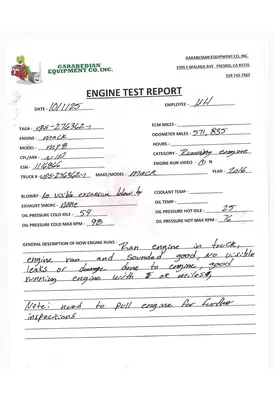 GARABEDIAN
EQUIPMENT CO. INC.
GARABEDIAN EQUIPMENT CO, INC.
1395 E MALAGA AVE FRESNO, CA 93725
559-743-7563
ENGINE TEST REPORT
DATE: 10/1/25 EMPLOYEE: UH
TAG#: VPS-276362-1 ECM MILES:
ENGINE: mack ODOMETER MILES: 571,835
MODEL: MP8 HOURS:
CPL/AR#: N/A CATEGORY: Running engine
ESN: 1146866 ENGINE RUN VIDEO: Y N
TRUCK #: VPS-276362-1 MAKE/MODEL: MACK YEAR: 2016
BLOWBY: no visible excessive blow by COOLANT TEMP:
EXHAUST SMOKE: none OIL TEMP:
OIL PRESSURE COLD IDLE: 54 OIL PRESSURE HOT IDLE: 25
OIL PRESSURE COLD MAX RPM: 98 OIL PRESSURE HOT MAX RPM: 76
GENERAL DESCRIPTION OF HOW ENGINE RUNS: Ran engine in truck,
engine ran and sounded good, No visible
leaks or damage done to engine, good
running engine with ok miles,
Note: need to pull engine for further
inspections